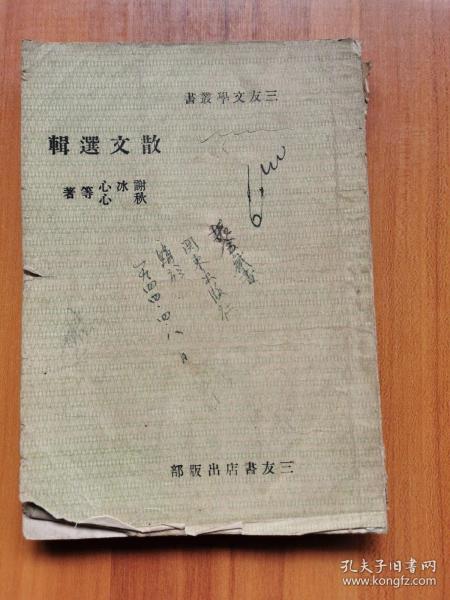 三友文學叢書
散文選輯
謝冰心
秋心
等著
購於
一九四四.四.八日
三友書店出版部
孔夫子旧书网
www.kongfz.com